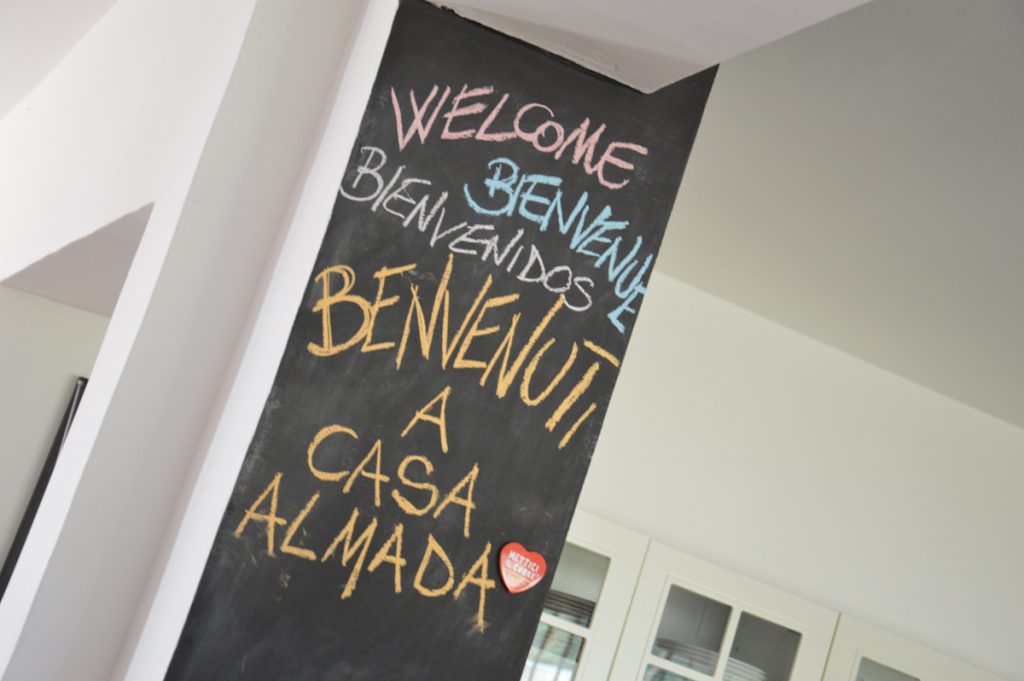 WELCOME
BIENVENUE
BIENVENIDOS
BENVENUTI
A
CASA
ALMADA
METTICI
IL CUORE